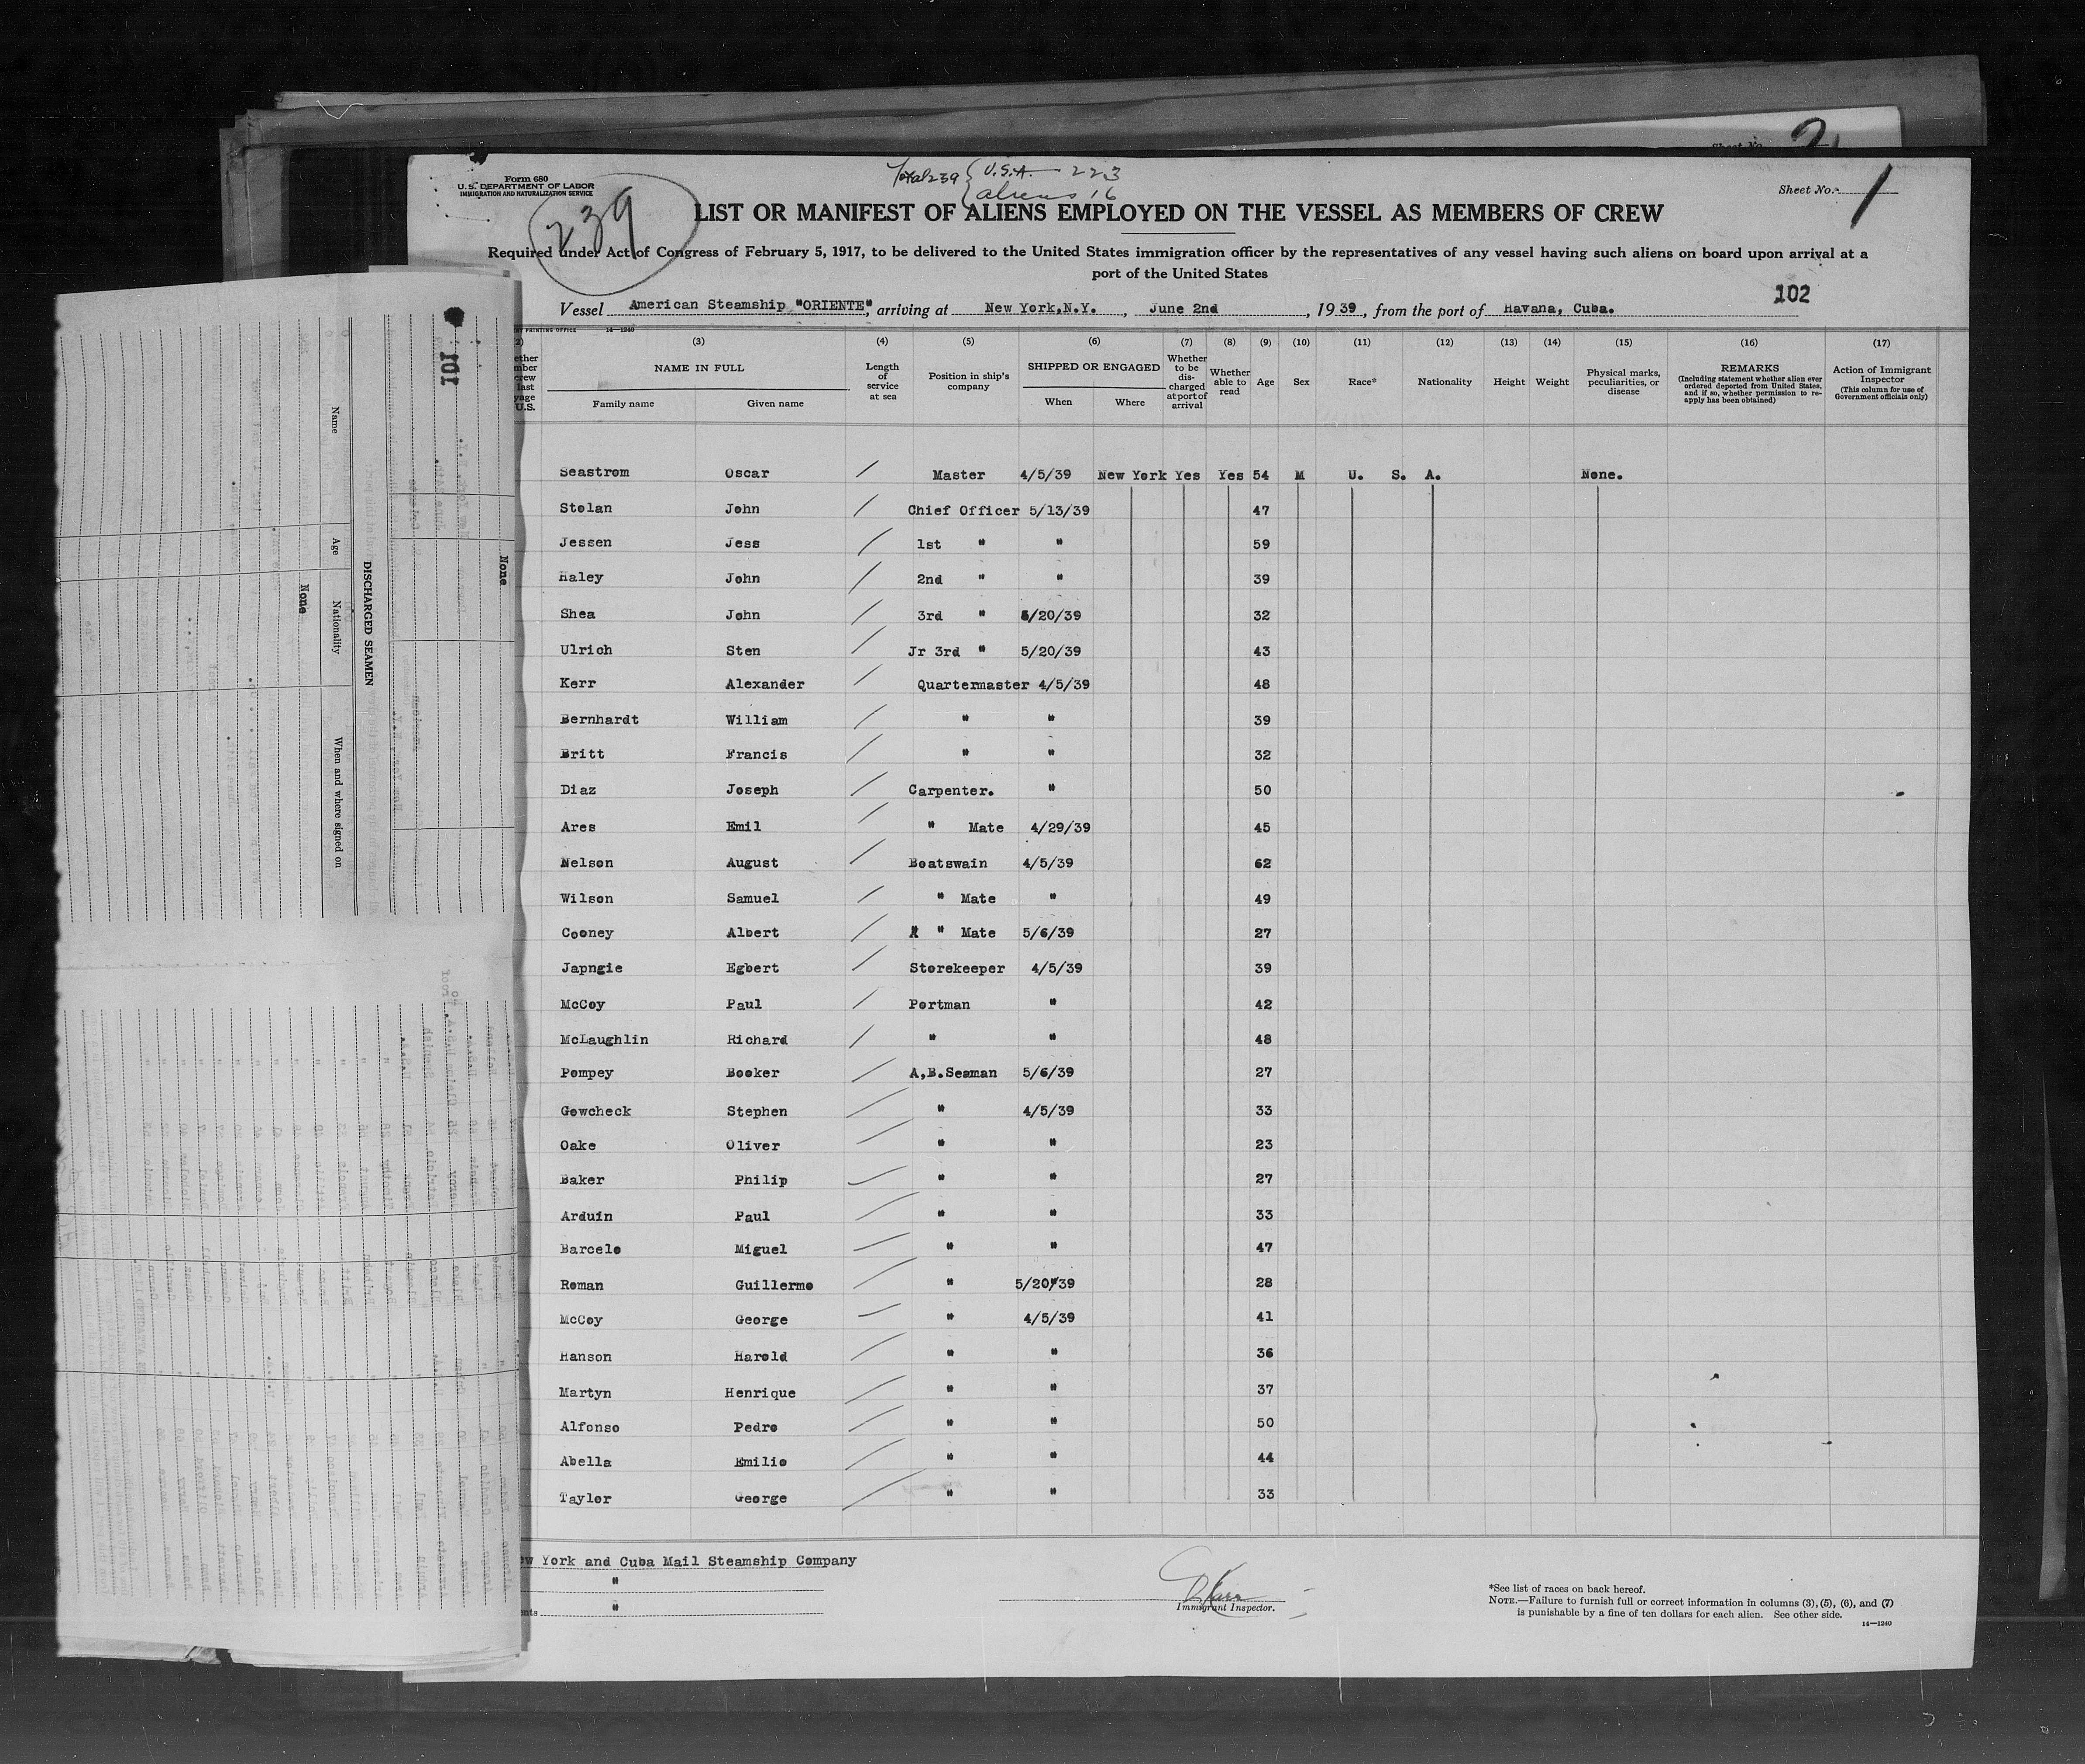 Sheet No.
2
Form 680
U. S. DEPARTMENT OF LABOR
IMMIGRATION AND NATURALIZATION SERVICE
Total 239 { U.S.A. 223
aliens 16
239
Sheet No. 1
LIST OR MANIFEST OF ALIENS EMPLOYED ON THE VESSEL AS MEMBERS OF CREW
Required under Act of Congress of February 5, 1917, to be delivered to the United States immigration officer by the representatives of any vessel having such aliens on board upon arrival at a
port of the United States
102
Vessel American Steamship "ORIENTE", arriving at New York,N.Y., June 2nd, 1939, from the port of Havana, Cuba.
PRINTING OFFICE 14—1240
(3) (4) (5) (6) (7) (8) (9) (10) (11) (12) (13) (14) (15) (16) (17)
NAME IN FULL
Family name Given name
Length of service at sea
Position in ship's company
SHIPPED OR ENGAGED
When Where
Whether to be discharged at port of arrival
Whether able to read
Age
Sex
Race*
Nationality
Height
Weight
Physical marks, peculiarities, or disease
REMARKS
(Including statement whether alien ever ordered deported from United States, and if so, whether permission to reapply has been obtained)
Action of Immigrant Inspector
(This column for use of Government officials only)
Seastrom Oscar Master 4/5/39 New York Yes Yes 54 M U. S. A. None.
Stolan John Chief Officer 5/13/39 47
Jessen Jess 1st " " 59
Haley John 2nd " " 39
Shea John 3rd " 5/20/39 32
Ulrich Sten Jr 3rd " 5/20/39 43
Kerr Alexander Quartermaster 4/5/39 48
Bernhardt William " " 39
Britt Francis " " 32
Diaz Joseph Carpenter. " 50
Ares Emil " Mate 4/29/39 45
Nelson August Boatswain 4/5/39 62
Wilson Samuel " Mate " 49
Cooney Albert " Mate 5/6/39 27
Japngie Egbert Storekeeper 4/5/39 39
McCoy Paul Portman " 42
McLaughlin Richard " " 48
Pompey Booker A,B.Seaman 5/6/39 27
Gowcheck Stephen " 4/5/39 33
Oake Oliver " " 23
Baker Philip " " 27
Arduin Paul " " 33
Barcelo Miguel " " 47
Roman Guillermo " 5/20/39 28
McCoy George " 4/5/39 41
Hanson Harold " " 36
Martyn Henrique " " 37
Alfonso Pedro " " 50
Abella Emilio " " 44
Taylor George " " 33
York and Cuba Mail Steamship Company
"
"
Immigrant Inspector.
*See list of races on back hereof.
NOTE.—Failure to furnish full or correct information in columns (3), (5), (6), and (7)
is punishable by a fine of ten dollars for each alien. See other side.
14—1240
101
None
DISCHARGED SEAMEN
Name Age Nationality When and where signed on
None